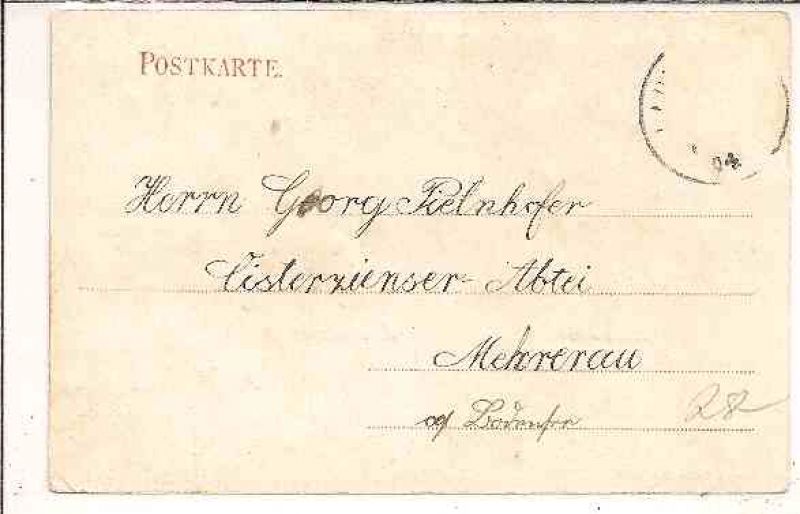 POSTKARTE.
Herrn Georg Pielnhofer
Cisterzienser-Abtei
Mehrerau
Bodensee
28